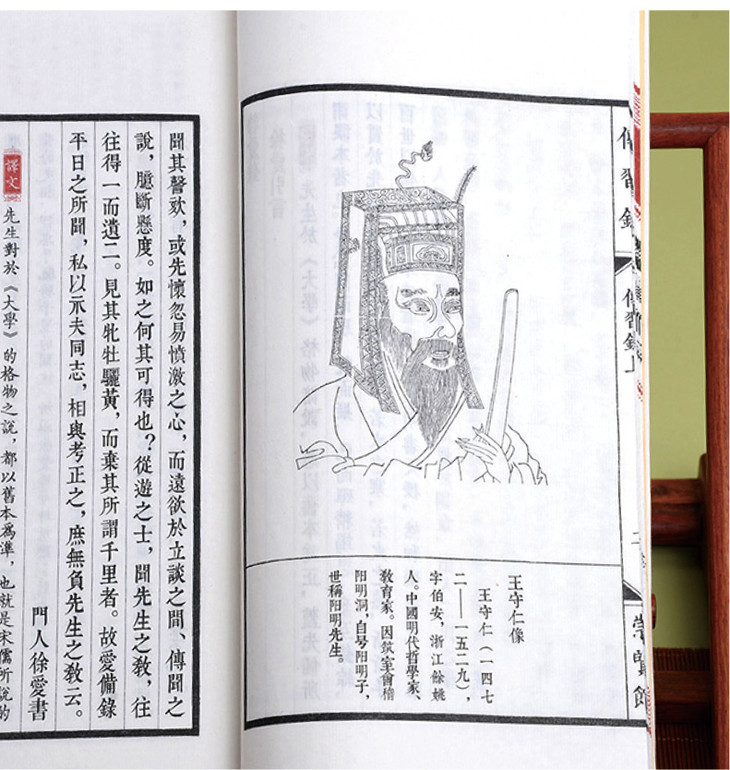 傳習錄
傳習錄上
崇賢館
王守仁像
王守仁（一四七
二——一五二九），
字伯安，浙江餘姚
人。中國明代哲學家、
教育家。因筑室會稽
阳明洞，自号阳明子，
世稱阳明先生。
聞其謦欬，或先懷忽易憤激之心，而遽欲於立談之間、傳聞之
說，臆斷懸度。如之何其可得也？從遊之士，聞先生之教，往
往得一而遺二。見其牝牡驪黃，而棄其所謂千里者。故愛備錄
平日之所聞，私以示夫同志，相與考正之，庶無負先生之教云。
門人徐愛書
譯文
先生對於《大學》的格物之說，都以舊本為準，也就是宋儒所說的